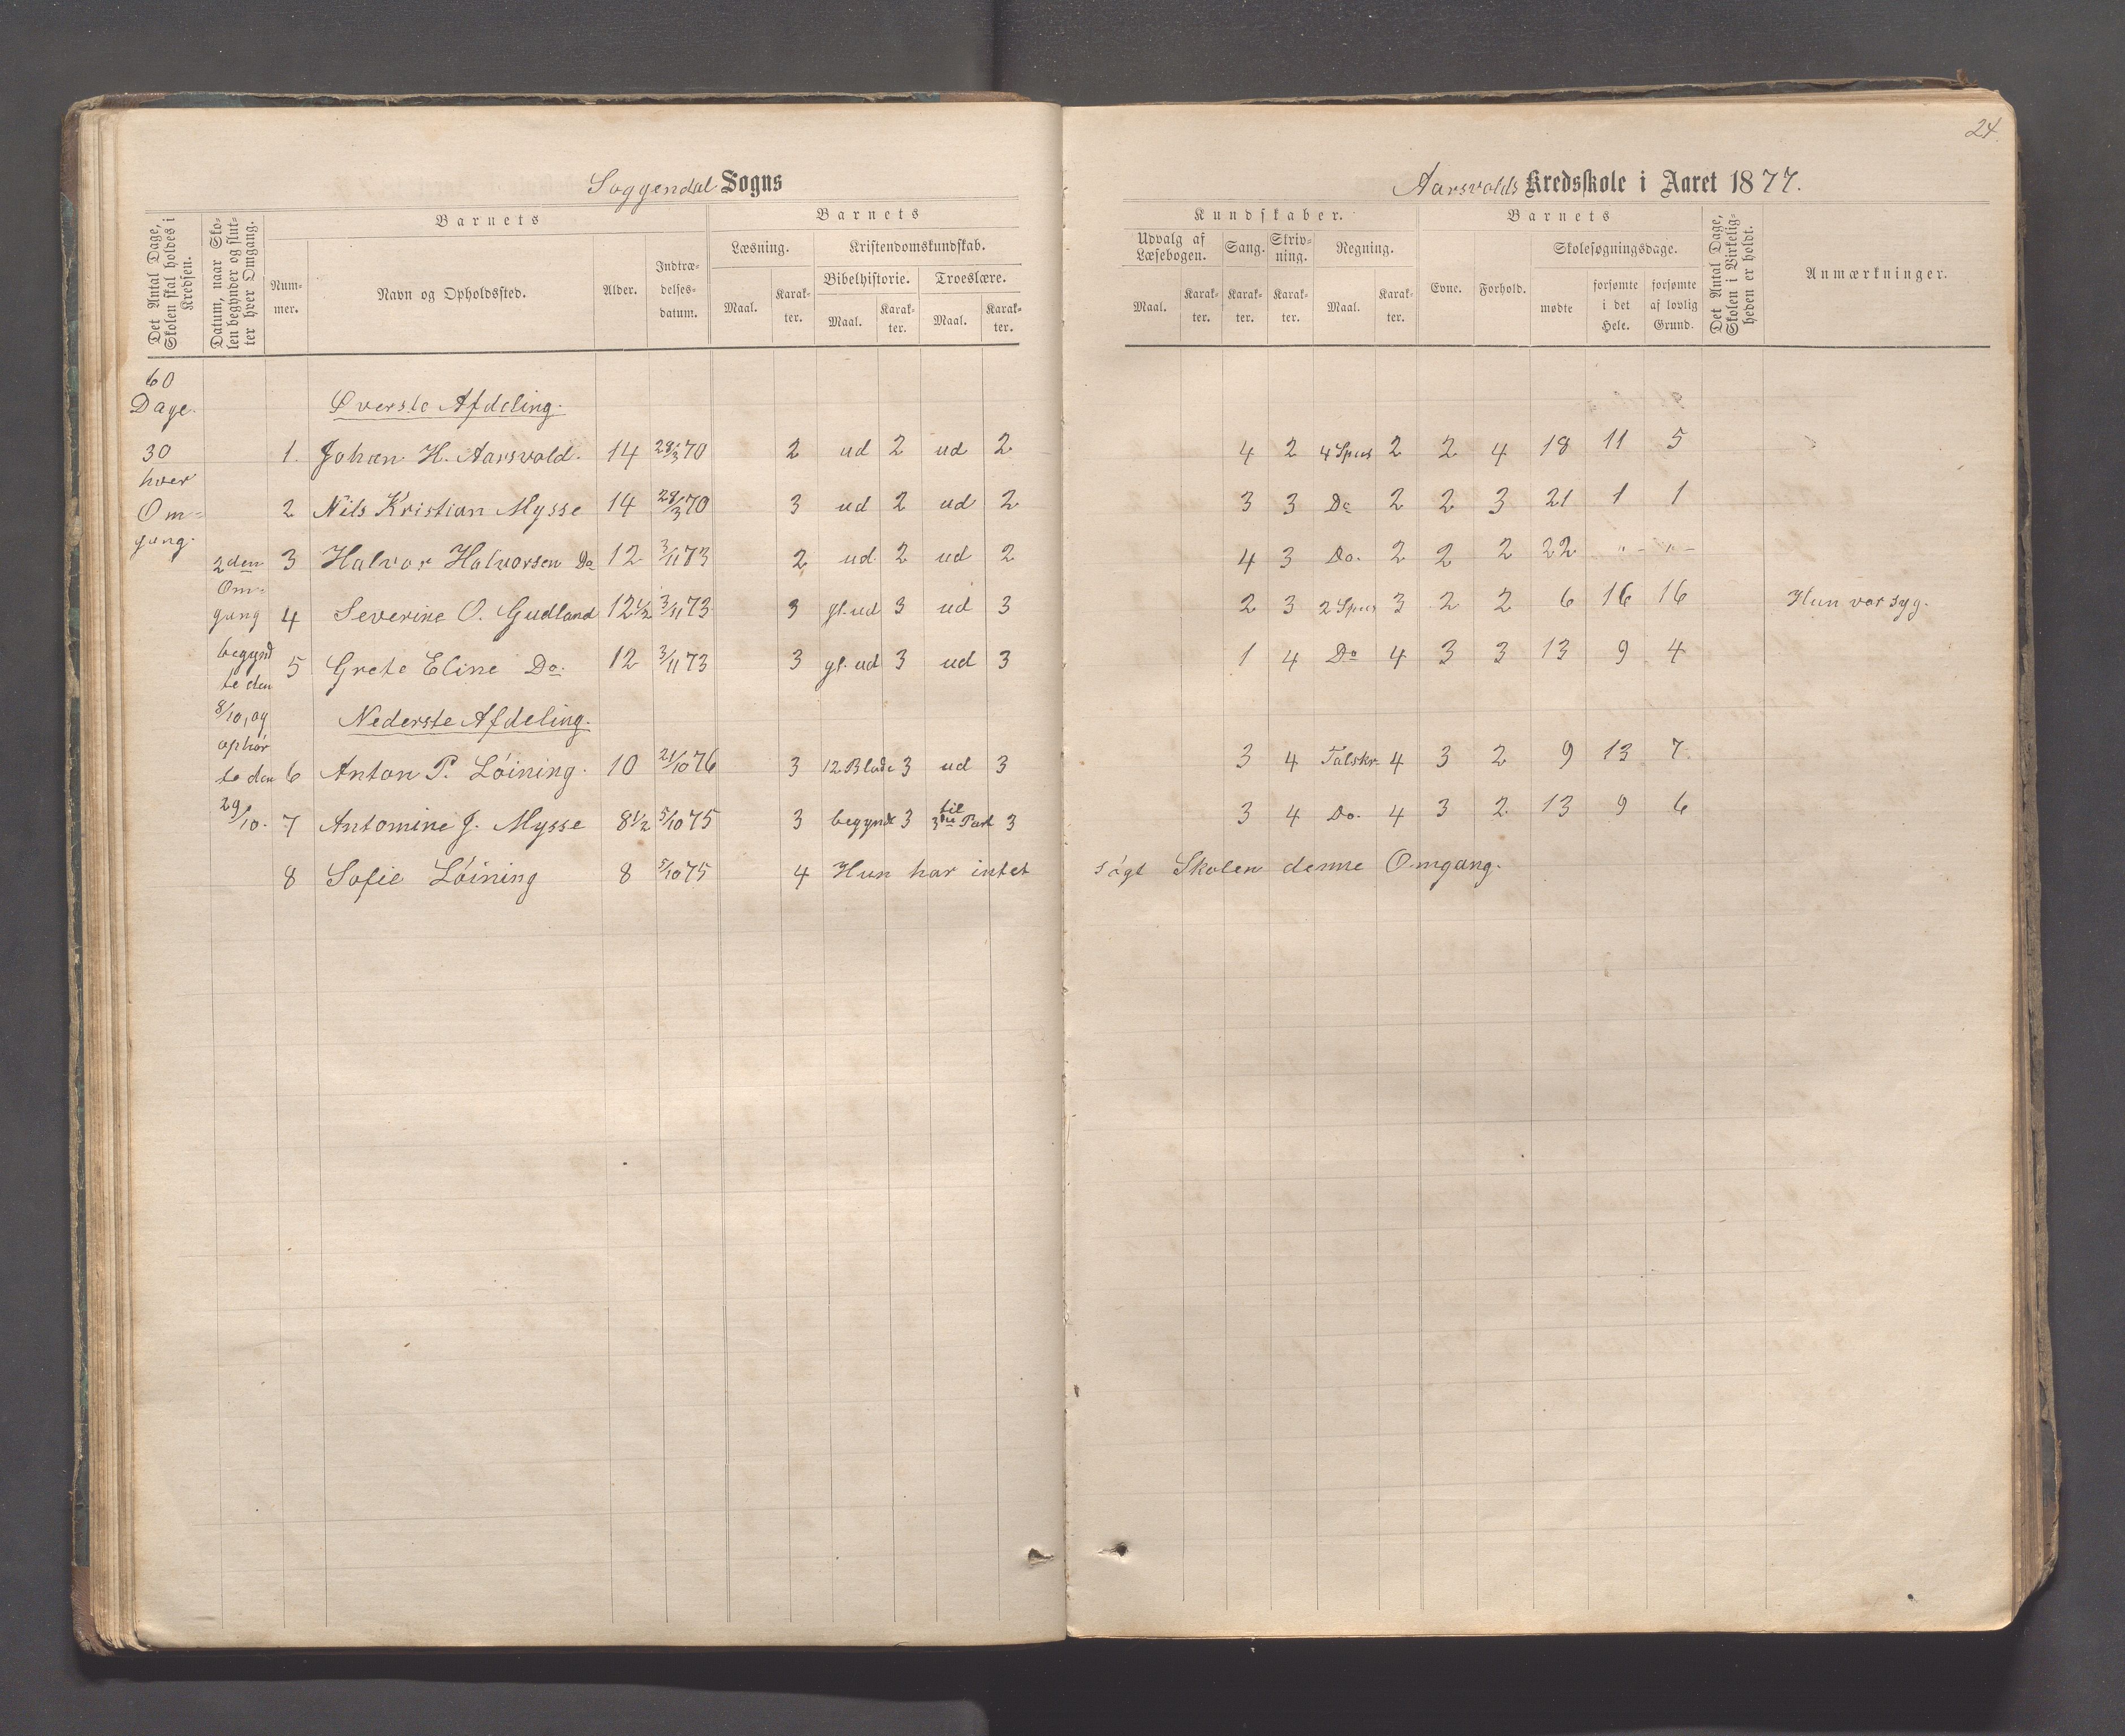 24.
Soggendal Sogns
Aarsvolds Kredsskole i Aaret 1877.
Det Antal Dage, Skolen skal holdes i Kredsen.
Datum, naar Skolen begynder og slutter hver Omgang.
Barnets
Nummer.
Navn og Opholdssted.
Alder.
Indtrædelsesdatum.
Barnets
Læsning.
Maal.
Karakter.
Kristendomskundskab.
Bibelhistorie.
Maal.
Karakter.
Troeslære.
Maal.
Karakter.
Kundskaber.
Udvalg af Læsebogen.
Maal.
Karakter.
Sang.
Karakter.
Skrivning.
Karakter.
Regning.
Maal.
Karakter.
Barnets
Evne.
Forhold.
Skolesøgningsdage.
mødte
forsømte i det Hele.
forsømte af lovlig Grund.
Det Antal Dage, Skolen i Virkeligheden er holdt.
Anmærkninger.
60
Dage.
30
hver
Om=
gang.
2den
Om=
gang
begynd
te den
8/10, og
ophør
te den
29/10.
Øverste Afdeling.
1. Johan H. Aarsvold. 14 28/3 70 2 ud 2 ud 2 4 2 4 Spec 2 2 4 18 11 5
2 Nils Kristian Mysse 14 28/3 70 3 ud 2 ud 2 3 3 Do 2 2 3 21 1 1
3 Halvor Halvorsen Do 12 3/11 73 2 ud. 2 ud 2 4 3 Do. 2 2 2 22 " - " -
4 Severine O. Gudland 12 1/2 3/11 73 3 gl. ud 3 ud 3 2 3 2 Spec 3 2 2 6 16 16 Hun var syg.
5 Grete Eline Do. 12 3/11 73 3 gl. ud 3 ud 3 1 4 Do 4 3 3 13 9 4
Nederste Afdeling.
6 Anton P. Løining. 10 21/10 76 3 12 Blade 3 ud 3 3 4 Talskr. 4 3 2 9 13 7
7 Antomine J. Mysse 8 1/2 5/10 75 3 begyndt 3 til 3die Part 3 3 4 Do. 4 3 2 13 9 6
8 Sofie Løining 8 5/10 75 4 Hun har intet søgt Skolen denne Omgang.